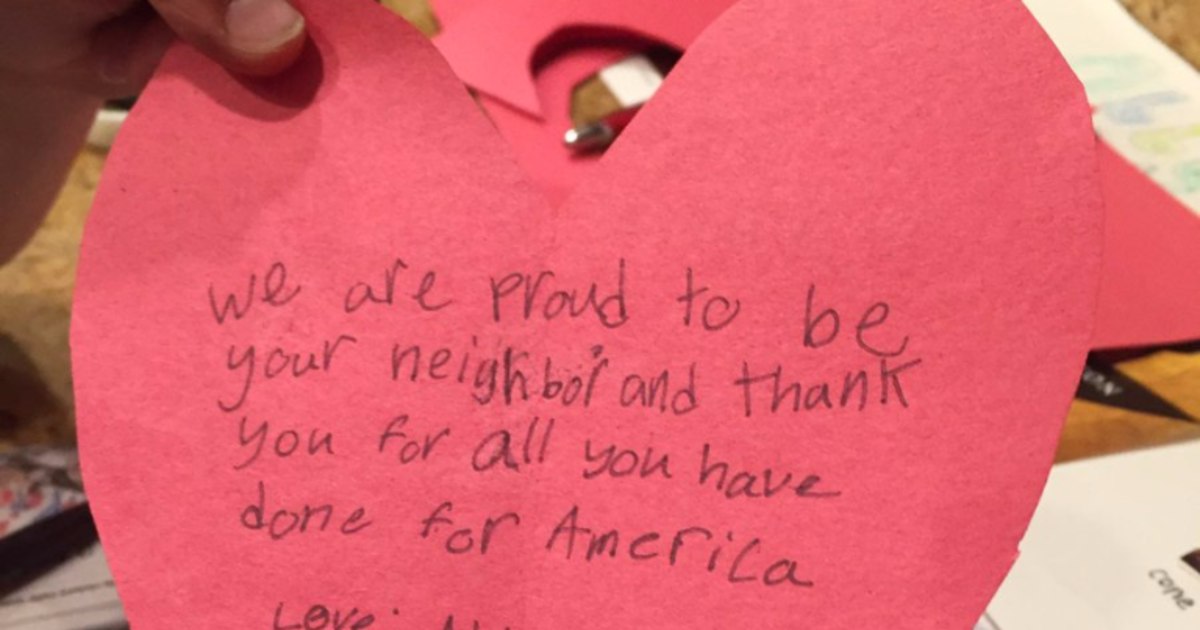 we are proud to be
your neighbor and thank
you for all you have
done for America
Love,
cope